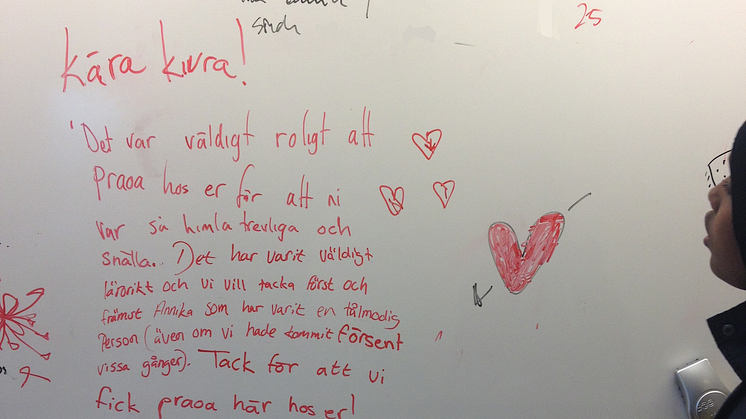 sindh
25
kära kivra!
Det var väldigt roligt att
praoa hos er för att ni
var så himla trevliga och
snälla.. Det har varit väldigt
lärorikt och vi vill tacka först och
främst Annika som har varit en tålmodig
person (även om vi hade kommit försent
vissa gånger). Tack för att vi
fick praoa här hos er!